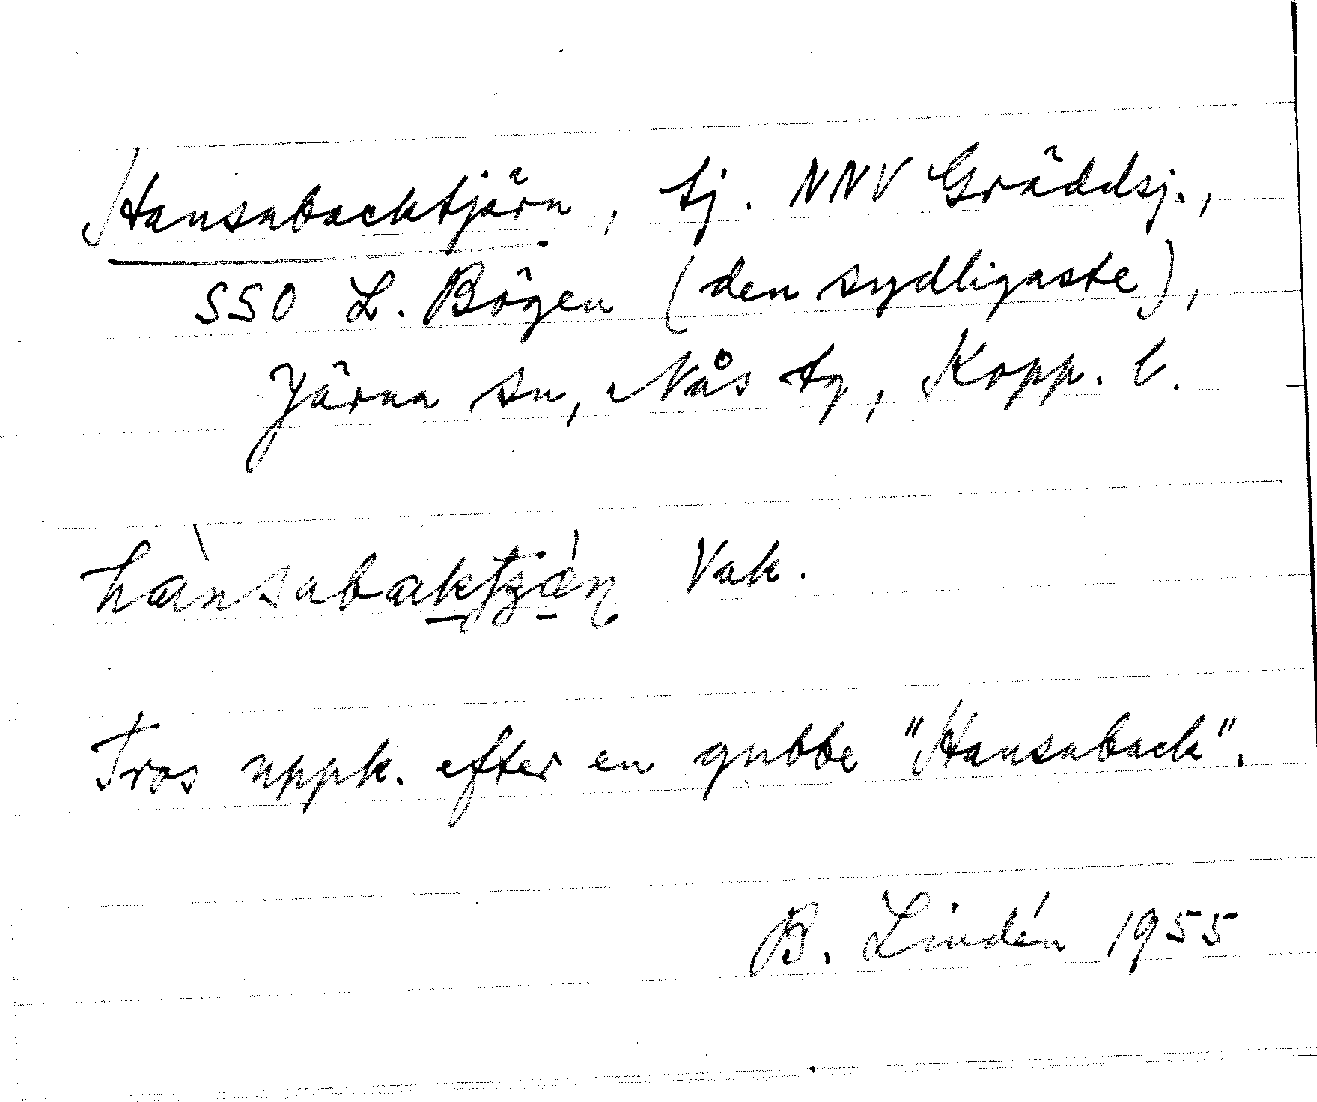 Hansabacktjärn, tj. NNV Gräddsj.,
SSO L. Bögen (den sydligaste),
Järna sn, Nås tg, Kopp. l.
Vak.
Tros uppk. efter en gubbe "Hansaback".
B. Lindén 1955